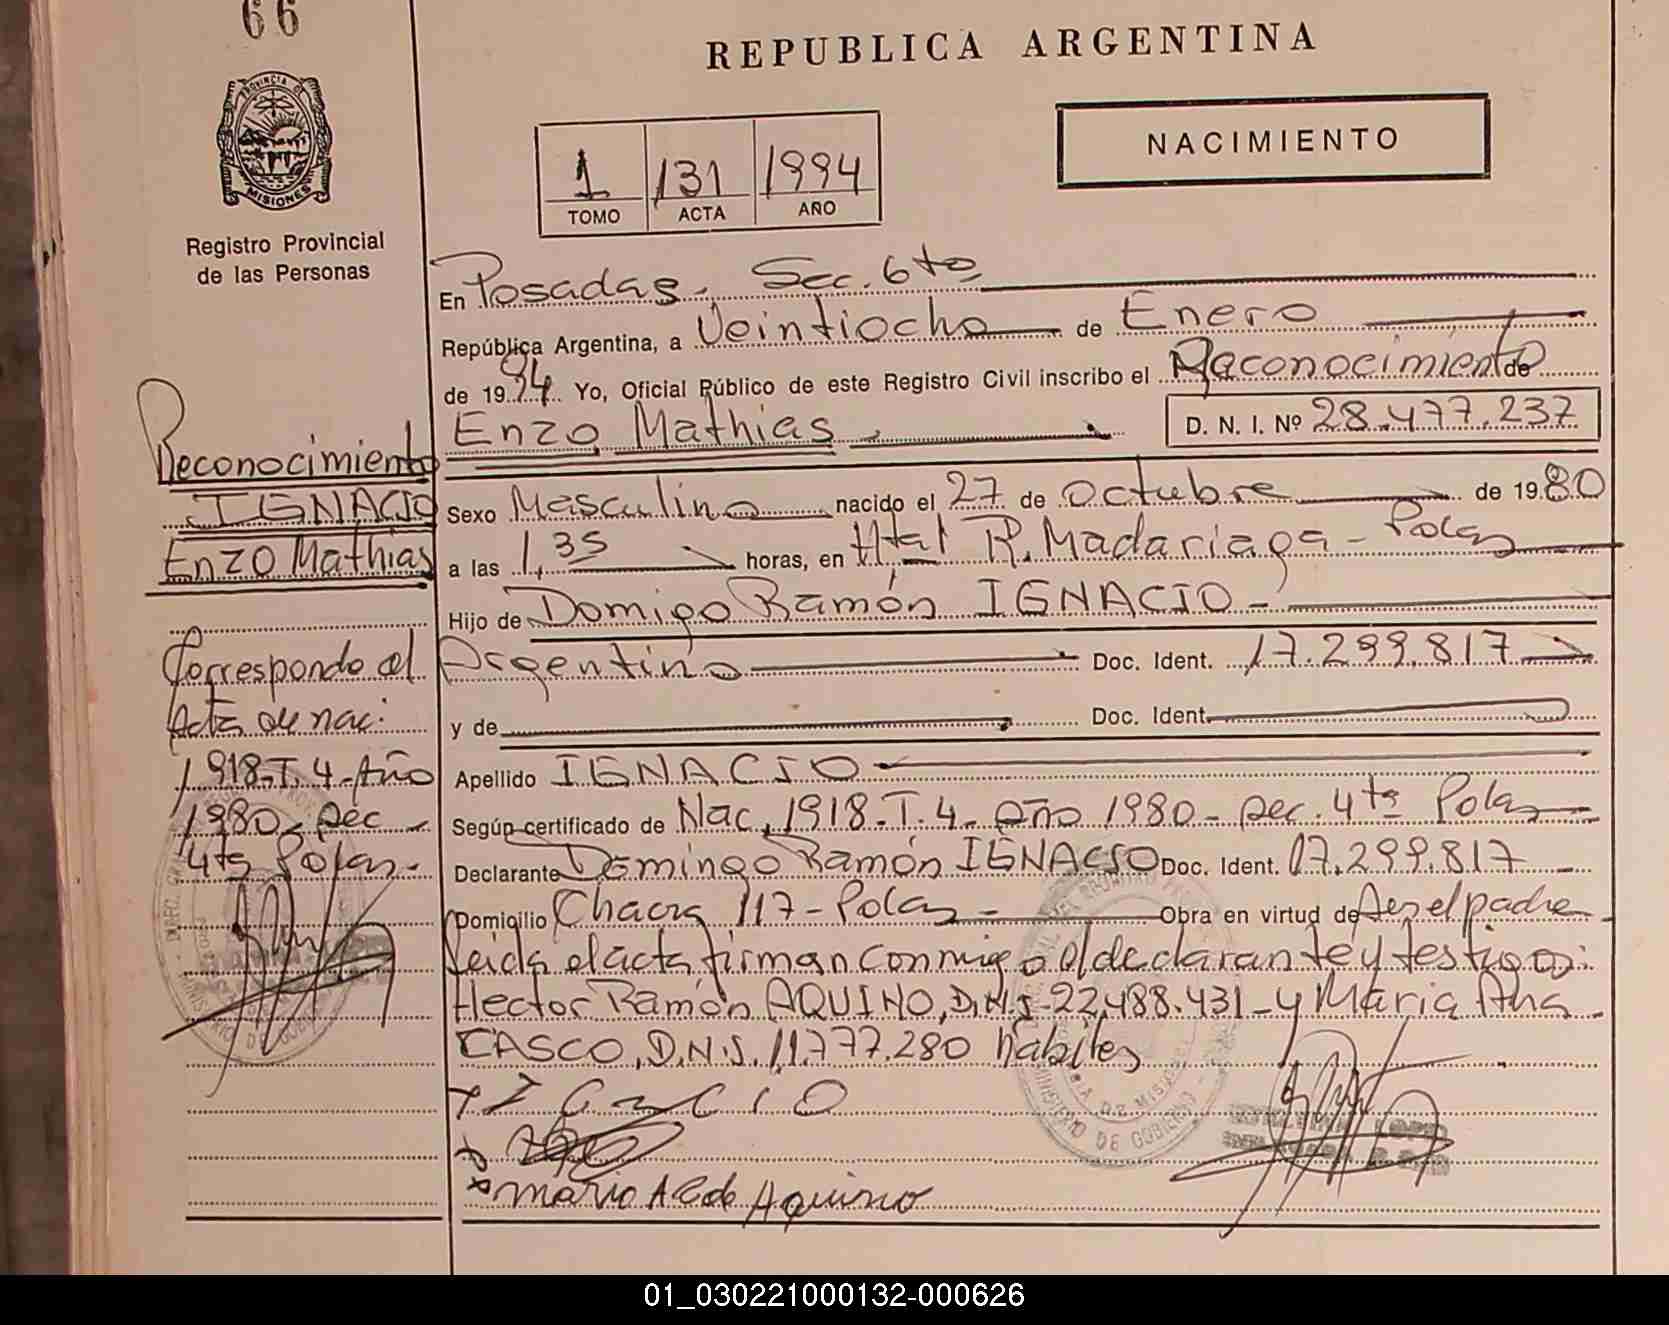 66
REPUBLICA ARGENTINA
PROVINCIA DE MISIONES
Registro Provincial
de las Personas
NACIMIENTO
1 131 1994
TOMO ACTA AÑO
En Posadas. Sec. 6to
República Argentina, a Veintiocho de Enero
de 1994. Yo, Oficial Público de este Registro Civil inscribo el Reconocimiento de
Enzo Mathias D. N. I. Nº 28.477.237
Sexo Masculino nacido el 27 de Octubre de 1980
a las 1,35 horas, en Htal R. Madariaga - Pdas
Hijo de Domigo Ramón IGNACIO -
Argentino Doc. Ident. 17.299.817
y de Doc. Ident.
Apellido IGNACIO
Según certificado de Nac, 1918-T.4- Año 1980- Sec. 4ta Pdas
Declarante Domingo Ramón IGNACIO Doc. Ident. 17.299.817
Domicilio Chacra 117 - Pdas - Obra en virtud de ser el padre
leida el acta firman conmigo el declarante y testigos:
Hector Ramón AQUINO, D.N.I. 22.488.431 - y Maria Ana
CASCO, D.N.I. 11.777.280 habiles
IGNACIO
Maria A C de Aquino
Reconocimiento
IGNACIO
Enzo Mathias
Corresponde al
Acta de nac:
1918-T.4-Año
1980- Sec -
4ta Pdas.-
01_030221000132-000626